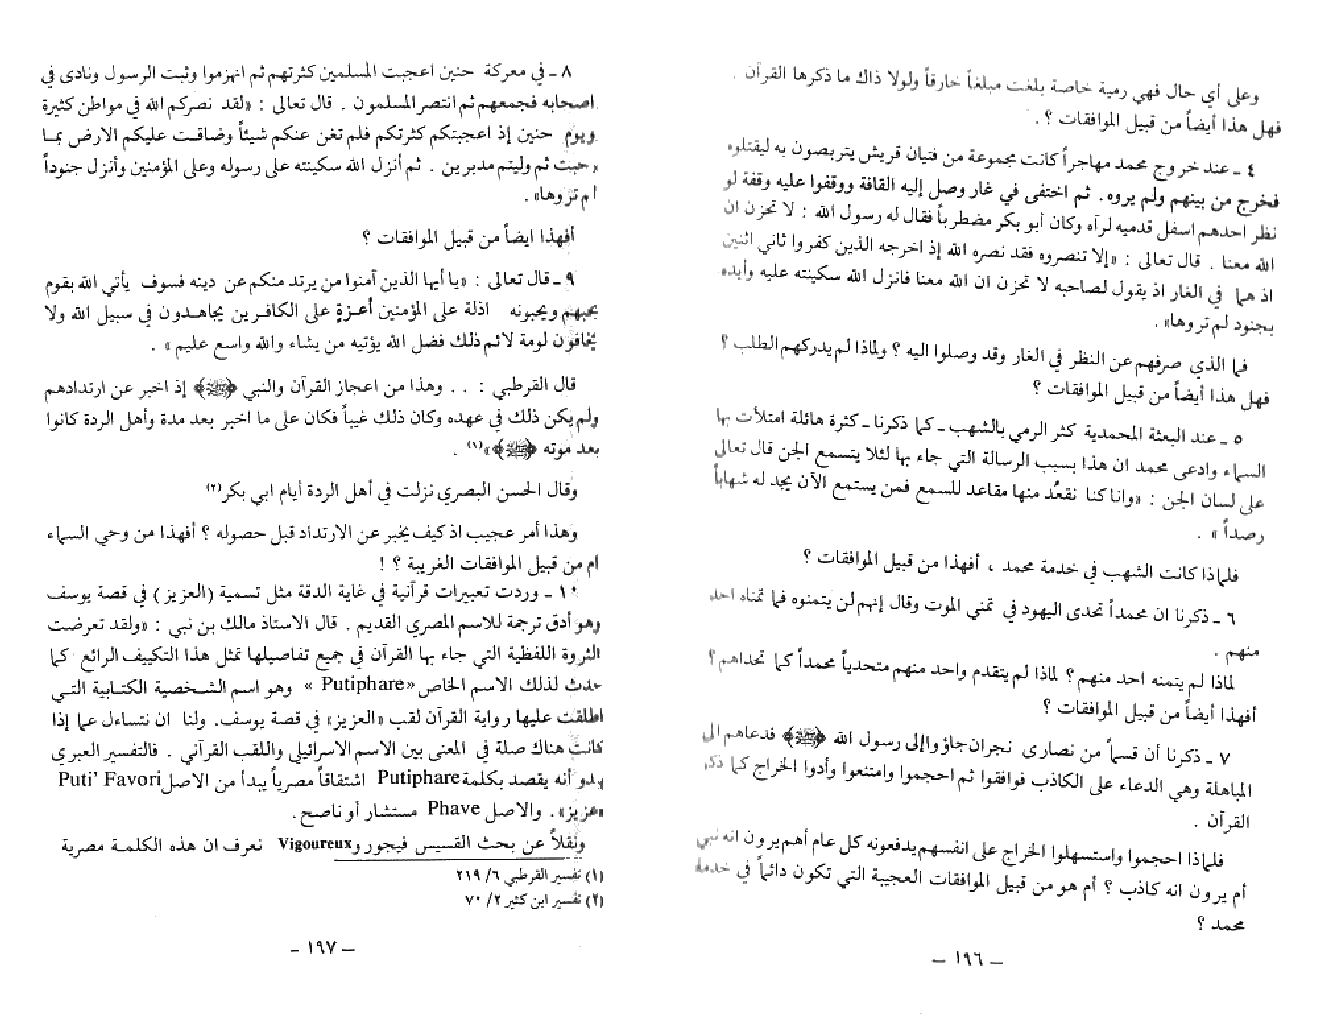 وعلى أي حال فهي رمية خاصة بلغت مبلغاً خارقاً ولولا ذاك ما ذكرها القرآن .
فهل هذا أيضاً من قبيل الموافقات ؟ .
٤ ـ عند خروج محمد مهاجراً كانت مجموعة من فتيان قريش يتربصون به ليقتلوه
فخرج من بينهم ولم يروه . ثم اختفى في غار وصل إليه القافة ووقفوا عليه وقفة لو
نظر احدهم اسفل قدميه لرآه وكان أبو بكر مضطرباً فقال له رسول الله : لا تحزن ان
الله معنا . قال تعالى : «إلا تنصروه فقد نصره الله إذ اخرجه الذين كفروا ثاني اثنين
اذ هما في الغار اذ يقول لصاحبه لا تحزن ان الله معنا فانزل الله سكينته عليه وأيده
بجنود لم تروها» .
فما الذي صرفهم عن النظر في الغار وقد وصلوا اليه ؟ ولماذا لم يدركهم الطلب ؟
فهل هذا أيضاً من قبيل الموافقات ؟
٥ ـ عند البعثة المحمدية كثر الرمي بالشهب ـ كما ذكرنا ـ كثرة هائلة امتلأت بها
السماء وادعى محمد ان هذا بسبب الرسالة التي جاء بها لئلا يتسمع الجن قال تعالى
على لسان الجن : «وانا كنا نقعُد منها مقاعد للسمع فمن يستمع الآن يجد له شهاباً
رصداً » .
فلماذا كانت الشهب في خدمة محمد ، أفهذا من قبيل الموافقات ؟
٦ ـ ذكرنا ان محمداً تحدى اليهود في تمني الموت وقال إنهم لن يتمنوه فما تمناه احد
منهم .
لماذا لم يتمنه احد منهم ؟ لماذا لم يتقدم واحد منهم متحدياً محمداً كما تحداهم ؟
أفهذا أيضاً من قبيل الموافقات ؟
٧ ـ ذكرنا أن قسماً من نصارى نجران جاؤوا إلى رسول الله ﴿ﷺ﴾ فدعاهم الى
المباهلة وهي الدعاء على الكاذب فوافقوا ثم احجموا وامتنعوا وأدوا الخراج كما ذكر
القرآن .
فلماذا احجموا واستسهلوا الخراج على انفسهم يدفعونه كل عام أهم يرون انه نبي
أم يرون انه كاذب ؟ أم هو من قبيل الموافقات العجيبة التي تكون دائماً في خدمة
محمد ؟
— ١٩٦ —
٨ ـ في معركة حنين اعجبت المسلمين كثرتهم ثم انهزموا وثبت الرسول ونادى في
اصحابه فجمعهم ثم انتصر المسلمون . قال تعالى : «لقد نصركم الله في مواطن كثيرة
ويوم حنين إذ اعجبتكم كثرتكم فلم تغن عنكم شيئاً وضاقت عليكم الارض بما
رحبت ثم وليتم مدبرين . ثم أنزل الله سكينته على رسوله وعلى المؤمنين وأنزل جنوداً
لم تروها» .
أفهذا ايضاً من قبيل الموافقات ؟
٩ ـ قال تعالى : «يا أيها الذين آمنوا من يرتد منكم عن دينه فسوف يأتي الله بقوم
يحبهم ويحبونه اذلة على المؤمنين أعزةٍ على الكافرين يجاهدون في سبيل الله ولا
يخافون لومة لائم ذلك فضل الله يؤتيه من يشاء والله واسع عليم» .
قال القرطبي : . . وهذا من اعجاز القرآن والنبي ﴿ﷺ﴾ إذ اخبر عن ارتدادهم
ولم يكن ذلك في عهده وكان ذلك غيباً فكان على ما اخبر بعد مدة وأهل الردة كانوا
بعد موته ﴿ﷺ﴾»(١) .
وقال الحسن البصري نزلت في أهل الردة أيام ابي بكر(٢)
وهذا أمر عجيب اذ كيف يخبر عن الارتداد قبل حصوله ؟ أفهذا من وحي السماء
ام من قبيل الموافقات الغريبة ؟ !
١٠ ـ وردت تعبيرات قرآنية في غاية الدقة مثل تسمية (العزيز) في قصة يوسف
وهو أدق ترجمة للاسم المصري القديم . قال الاستاذ مالك بن نبي : «ولقد تعرضت
الثروة اللفظية التي جاء بها القرآن في جميع تفاصيلها تمثل هذا التكييف الرائع كما
حدث لذلك الاسم الخاص «Putiphare » وهو اسم الشخصية الكتابية التي
اطلقت عليها رواية القرآن لقب «العزيز» في قصة يوسف. ولنا ان نتساءل عما إذا
كانت هناك صلة في المعنى بين الاسم الاسرائيلي واللقب القرآني . فالتفسير العبري
يبدو أنه يقصد بكلمة Putiphare اشتقاقاً مصرياً يبدأ من الاصل Puti' Favori
«عزيز» . والاصل Phave مستشار أو ناصح.
ونقلاً عن بحث القسيس فيجورو Vigoureux نعرف ان هذه الكلمة مصرية
(١) تفسير القرطبي ٦/ ٢١٩
(٢) تفسير ابن كثير ٢/ ٧٠
— ١٩٧ —